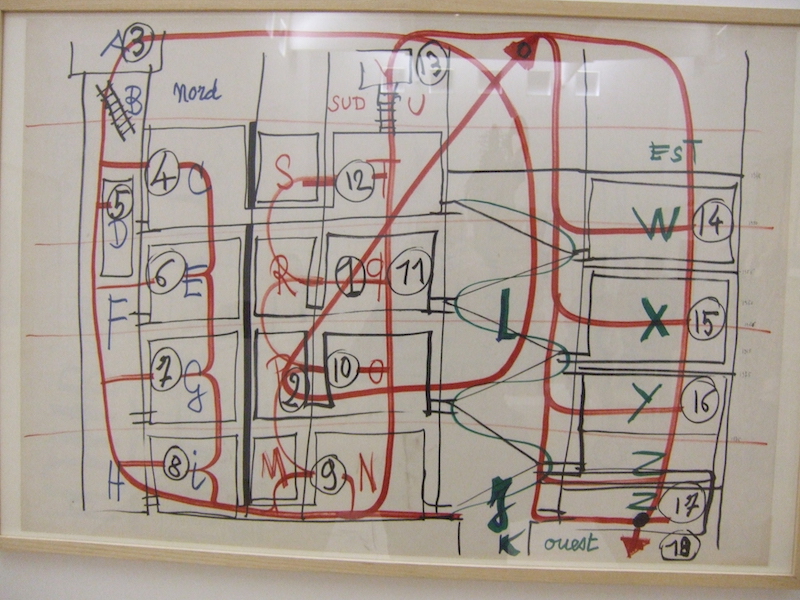 A 3
13
B Nord
SUD U
EST
4 C
S 12 T
5
D
W 14
6 E
R 1 q 11
F
L
X 15
7 G
P 2 10 O
Y 16
H 8 i
M 9 N
Z
Z 17
J
K ouest 18